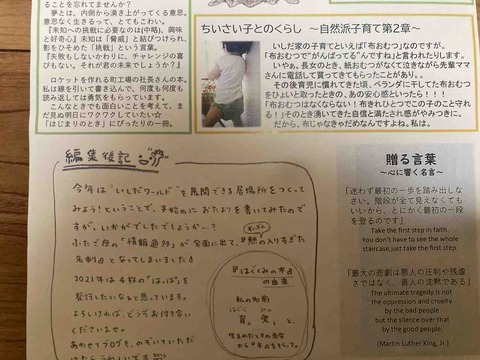 ることを忘れてませんか？
夢とは、内側から湧き上がってくる意思。
意思なく生きるって、とてもこわい。
『未知への挑戦に必要なのは(中略)、興味
と好奇心』未知は「脅威」と結びつけられ、
影をひそめた「挑戦」という言葉。
『失敗もしないかわりに、チャレンジの喜
びもない。それが君の未来でしょうか？』
ロケットを作れる町工場の社長さんの本。
私は線を引いて書き込んで、何度も何度も
読み返しては勇気をもらっています。
こんなときでも面白いことを考えて、ま
だ見ぬ明日にワクワクしていたい☆
『はじまりのとき』にぴったりの一冊。
ちいさい子とのくらし ～自然派子育て第2章～
いしだ家の子育てといえば「布おむつ」なのですが。
「布おむつで“がんばってる”んですね」と言われたりします。
いやぁ。長女のとき、紙おむつがなくて泣きながら先輩ママ
さんに電話して買ってきてもらったことがあり。。
その後育児に慣れてきた頃、ベランダに干してた布おむつ
をひょいと取ったときの、あの安心感といったら！！！
「布おむつはなくならない！布きれひとつでこの子のこと守れ
る！」そのとき湧いてきた自信と満たされ感がやみつきに。
だから、布じゃなきゃだめなんですよね。私は。
編集後記
今年は“いしだワールド”を展開できる居場所をつくって
みよう！ということで、手始めに おたよりを書いてみたので
すが、いかがでしたでしょうか…？
ふたご座の「情報過多」が全面に出て、『熱の入りすぎた
名刺』となってしまいました
2021年は4枚の「はっぱ」を
発行したいなぁと思っています。
よろしければ、どうぞお付き合い
くださいませ。
あわせてブログも、のぞいていただ
けたらうれしいです。
『はぐくみの木』
の由来
私の名前
はぐ くみ
育 久美 と、
生まれたときの名字
から“木”をもらって。
贈る言葉
～心に響く名言～
「迷わず最初の一歩を踏み出しな
さい。階段が全て見えなくても
いいから、とにかく最初の一段
を登るのです」
Take the first step in faith.
You don't have to see the whole
staircase,just take the first step.
「最大の悲劇は悪人の圧制や残虐
さではなく、善人の沈黙である」
The ultimate tragedy is not
the oppression and cruelty
by the bad people
but the silence over that
by the good people.
(Martin Luther King, Jr.)